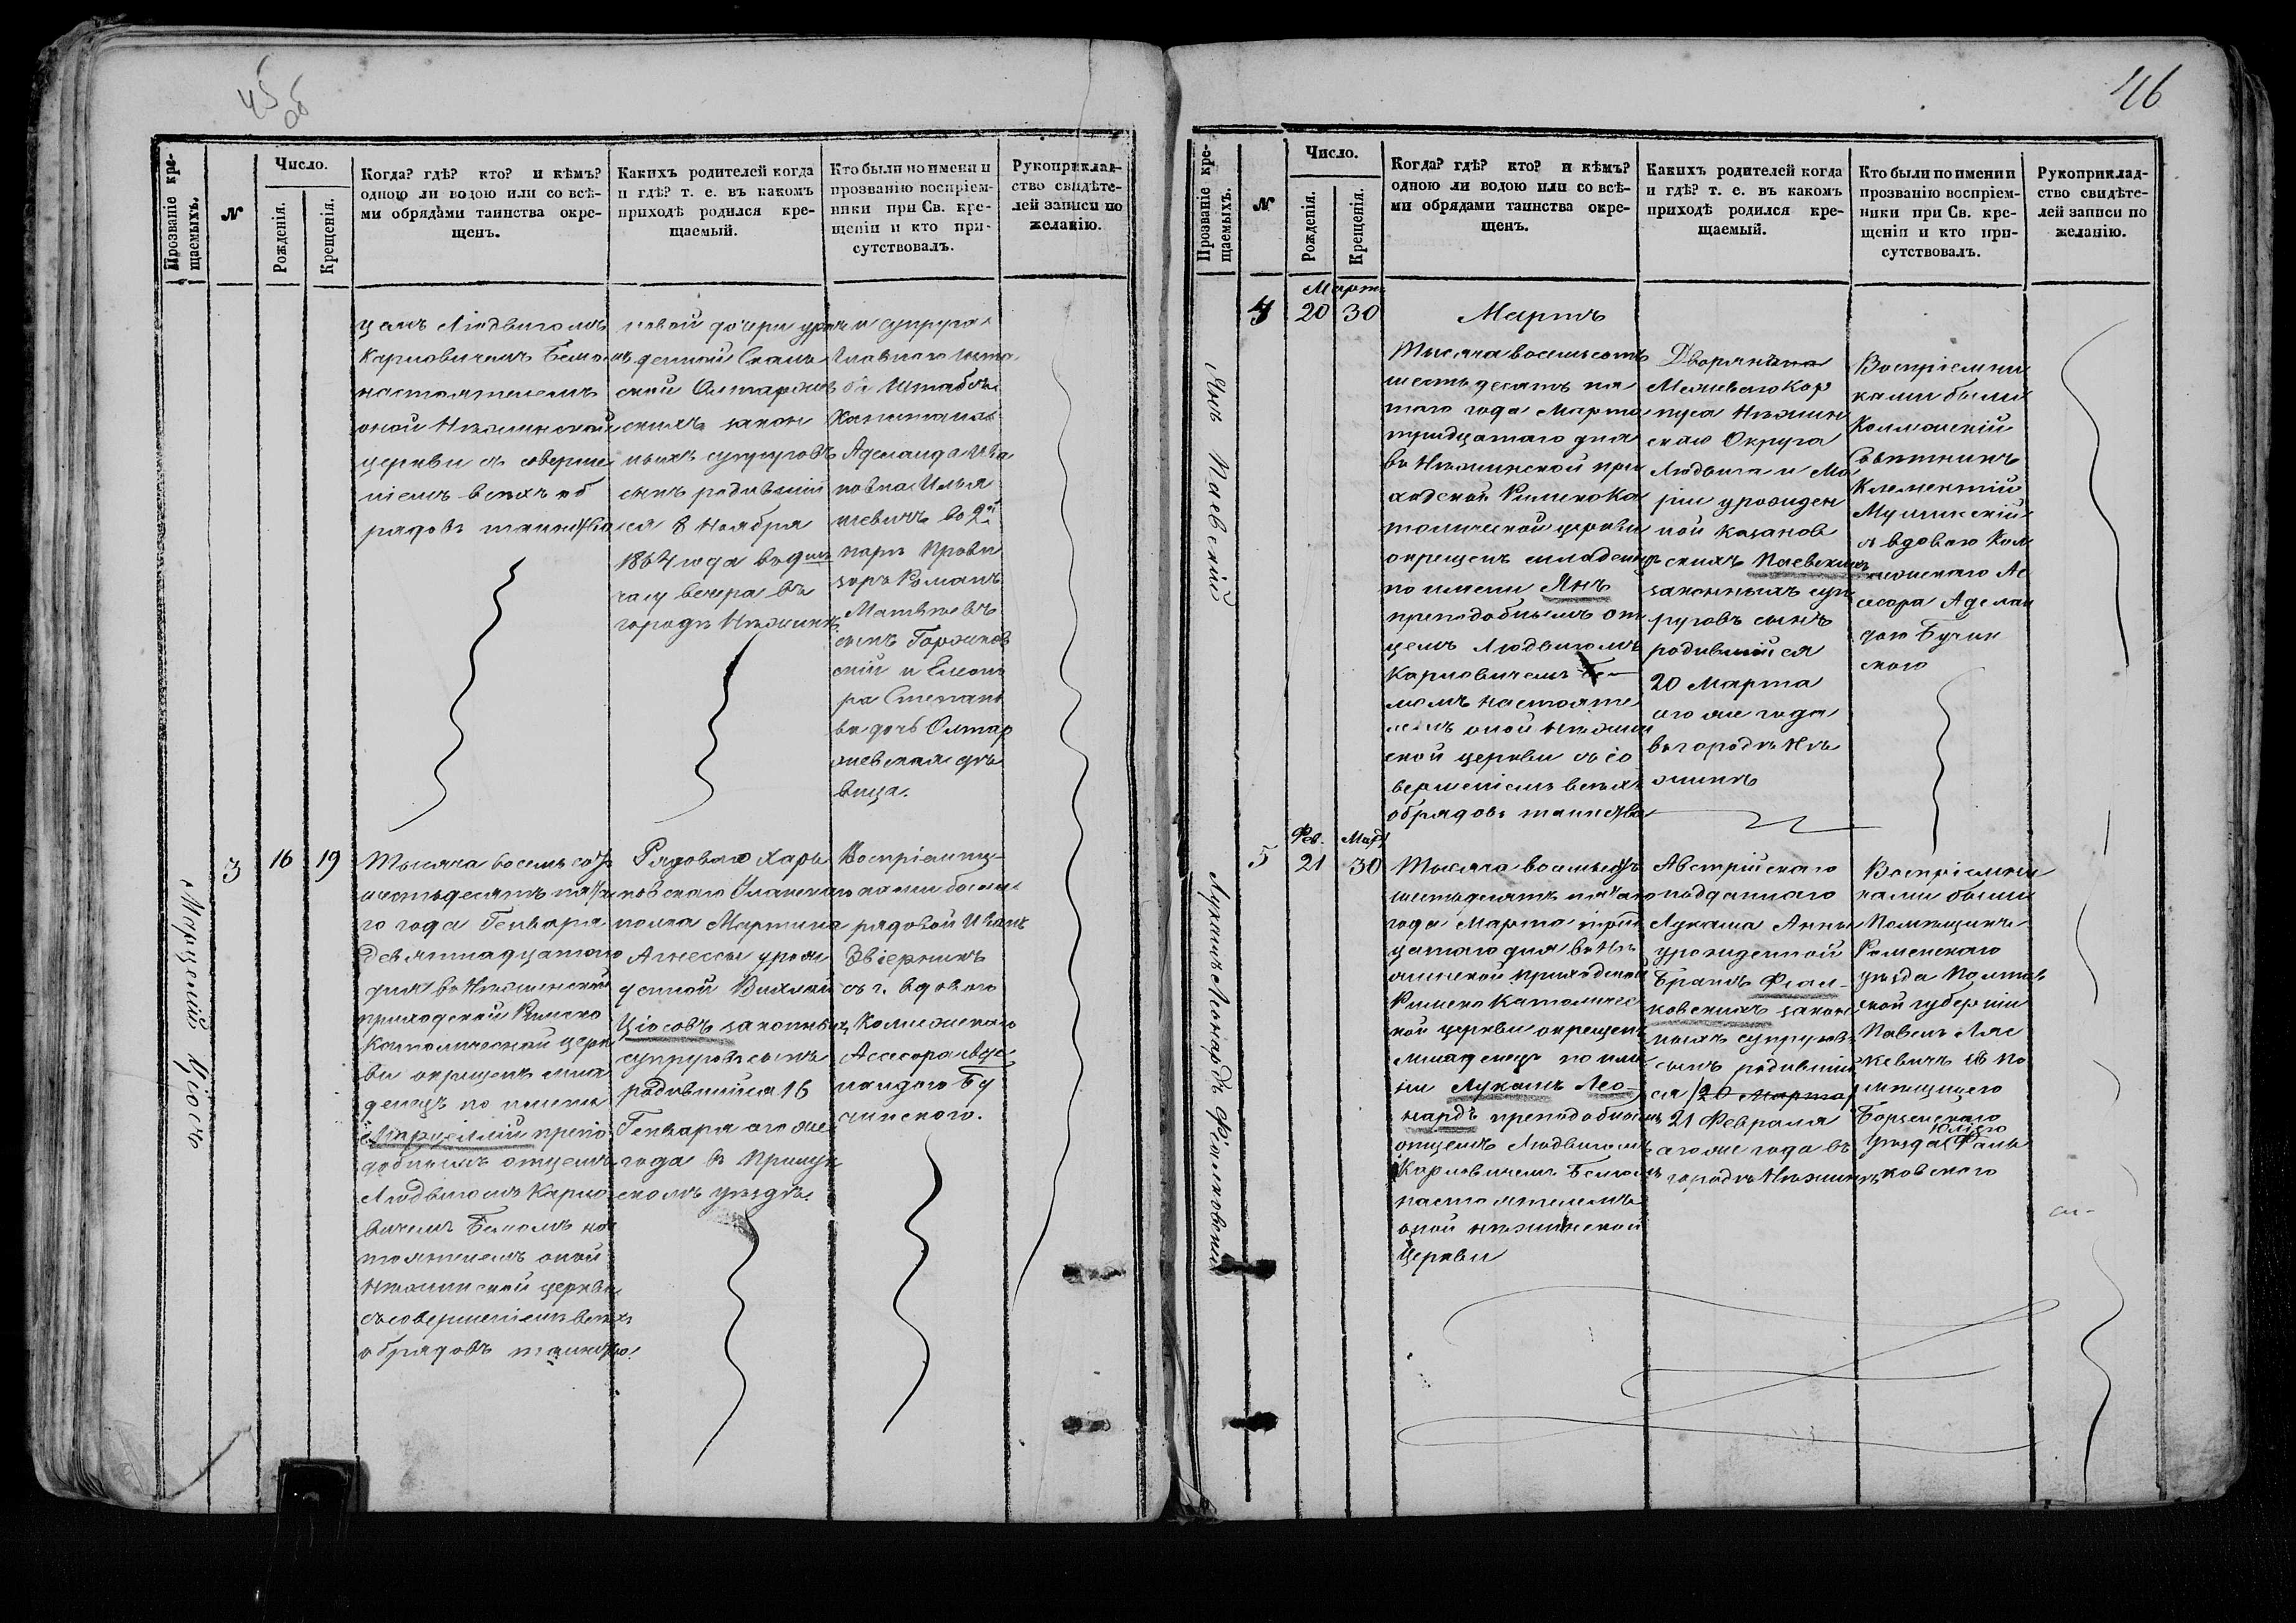 45
об
Прозваніе кре-
щаемыхъ.
№
Число.
Рожденія.
Крещенія.
Когда? гдѣ? кто? и кѣмъ?
одною ли водою или со всѣ-
ми обрядами таинства окре-
щенъ.
Какихъ родителей когда
и гдѣ? т. е. въ какомъ
приходѣ родился кре-
щаемый.
Кто были по имени и
прозванію воспріем-
ники при Св. кре-
щеніи и кто при-
сутствовалъ.
Рукоприклад-
ство свидѣте-
лей записи по
желанію.
цемъ Людвигомъ
Карловичемъ Бемомъ
настоятелемъ
оной Нѣжинской
церкви съ соверше
ніемъ всѣхъ об
рядовъ таинства
новой дочери урож
денной
скихъ закон
ныхъ супруговъ
сынъ родившій
ся 8 Ноября
1864 года въ
часу вечера въ
городѣ Нѣжинѣ
и супруга
Штабсъ
Капитана
Аделаида Ива
новна Илья
шевичъ во 2й
парѣ Прови
зоръ Романъ
Матвѣевъ
сынъ Горжков
скій и Елеоно
ра Степано
ва дочь Олтар
жевская дѣ
вица.
Марцелій Ціосъ
3
16
19
Тысяча восемьсотъ
шестьдесятъ пята
го года Генваря
девятнадцатаго
дня въ Нѣжинской
приходской Римско
Католической церк
ви окрещенъ мла
денецъ по имени
Марцеллій препо
добнымъ отцемъ
Людвигомъ Карло
вичемъ Бемомъ нас
тоятелемъ оной
Нѣжинской церкви
съ совершеніемъ всѣхъ
обрядовъ таинства
Рядоваго Харь
ковскаго Уланскаго
полка Мартина
Агнессы урож
денной
Ціосовъ законныхъ
супруговъ сынъ
родившійся 16
Генваря сего же
года въ Прилук
скомъ уѣздѣ
Воспріемни-
ками были
рядовой Иванъ
съ г. вдовою
Коллежскаго
Ассесора Аде
лаидою Бу
чинскою.
46
Прозваніе кре-
щаемыхъ.
№
Число.
Рожденія.
Крещенія.
Когда? гдѣ? кто? и кѣмъ?
одною ли водою или со всѣ-
ми обрядами таинства окре-
щенъ.
Какихъ родителей когда
и гдѣ? т. е. въ какомъ
приходѣ родился кре-
щаемый.
Кто были по имени и
прозванію воспріем-
ники при Св. кре-
щеніи и кто при-
сутствовалъ.
Рукоприклад-
ство свидѣте-
лей записи по
желанію.
Янъ Паевскій
4
Мартъ
20
30
Мартъ
Тысяча восемьсотъ
шестьдесятъ пя
таго года Марта
тридцатаго дня
въ Нѣжинской при
ходской Римско Ка
толической церкви
окрещенъ младенецъ
по имени Янъ
преподобнымъ от
цемъ Людвигомъ
Карловичемъ Бе-
момъ настояте
лемъ оной Нѣжин
ской церкви съ со
вершеніемъ всѣхъ
обрядовъ таинства
Дворянъ
Межеваго Кор
пуса Нѣжин
скаго Округа
Людвига и Ма
ріи урожден
ной Казанов
скихъ Паевскихъ
законныхъ суп
руговъ сынъ
родившійся
20 Марта
сего же года
въ городѣ Нѣ
жинѣ
Воспріемни
ками были
Коллежскій
Совѣтникъ
Климентій
съ вдовою Кол
лежскаго Ас
сесора Аделаи
дою Бучин
скою
Лукашъ Леонардъ Фіалковскій
5
Фев.
21
Март
30
Тысяча восемьсотъ
шестьдесятъ пятаго
года Марта трид
цатаго дня въ Нѣ
жинской приходской
Римско Католичес
кой церкви окрещенъ
младенецъ по име
ни Лукашъ Лео-
нардъ преподобнымъ
отцемъ Людвигомъ
Карловичемъ Бемомъ
настоятелемъ
оной Нѣжинской
Церкви
Австрійскаго
подданнаго
Лукаша Анны
урожденной
Бранъ Фіал-
ковскихъ закон
ныхъ супруговъ
сынъ родившій
ся (20 Марта)
21 Февраля
сего же года въ
городѣ Нѣжинѣ
Воспріемни
ками были
Помѣщикъ
Роменскаго
уѣзда Полтав
ской губерніи
Павелъ Ляс
кевичъ съ по
мѣщицею
Борзенскаго
Юліею
Уѣзда Фаль
ковскою